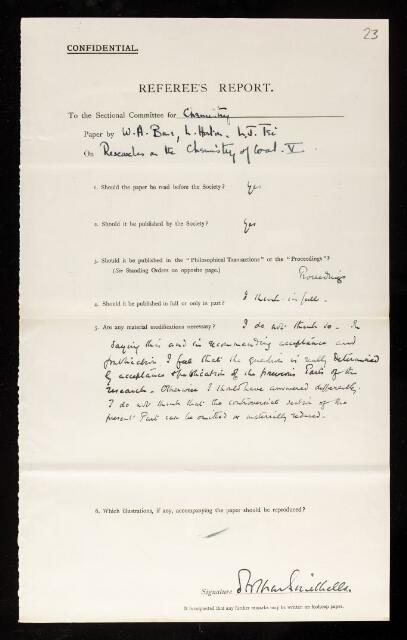 23
CONFIDENTIAL.
REFEREE'S REPORT.
To the Sectional Committee for Chemistry
Paper by W. A. Bone, L. Horton, L. J. Tei
On Researches on the Chemistry of Coal. V.
1. Should the paper be read before the Society? Yes
2. Should it be published by the Society? Yes
3. Should it be published in the "Philosophical Transactions" or the "Proceedings"?
(See Standing Orders on opposite page.)
Proceedings
4. Should it be published in full or only in part? I think in full.
5. Are any material modifications necessary? I do not think so. In
saying this and in recommending acceptance and
publication I feel that the question is really determined
by acceptance & publication of the previous Parts of the
research. Otherwise I should have answered differently.
I do not think that the controversial section of the
present Part can be omitted or materially reduced.
6. Which illustrations, if any, accompanying the paper should be reproduced?
Signature Arthur Smithells.
It is requested that any further remarks may be written on foolscap paper.